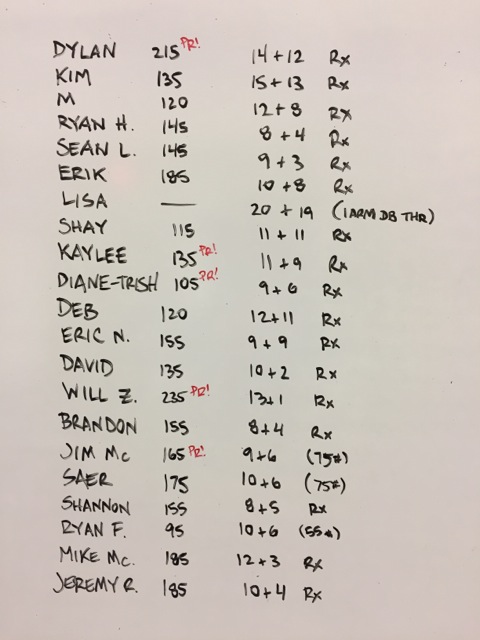 DYLAN 215 PR! 14+12 Rx
KIM 135 15+13 Rx
M 120 12+8 Rx
RYAN H. 145 8+4 Rx
SEAN L. 145 9+3 Rx
ERIK 185 10+8 Rx
LISA — 20+19 (1ARM DB THR)
SHAY 115 11+11 Rx
KAYLEE 135 PR! 11+9 Rx
DIANE-TRISH 105 PR! 9+6 Rx
DEB 120 12+11 Rx
ERIC N. 155 9+9 Rx
DAVID 135 10+2 Rx
WILL Z. 235 PR! 13+1 Rx
BRANDON 155 8+4 Rx
JIM Mc 165 PR! 9+6 (75#)
SAER 175 10+6 (75#)
SHANNON 155 8+5 Rx
RYAN F. 95 10+6 (55#)
MIKE Mc. 185 12+3 Rx
JEREMY R. 185 10+4 Rx